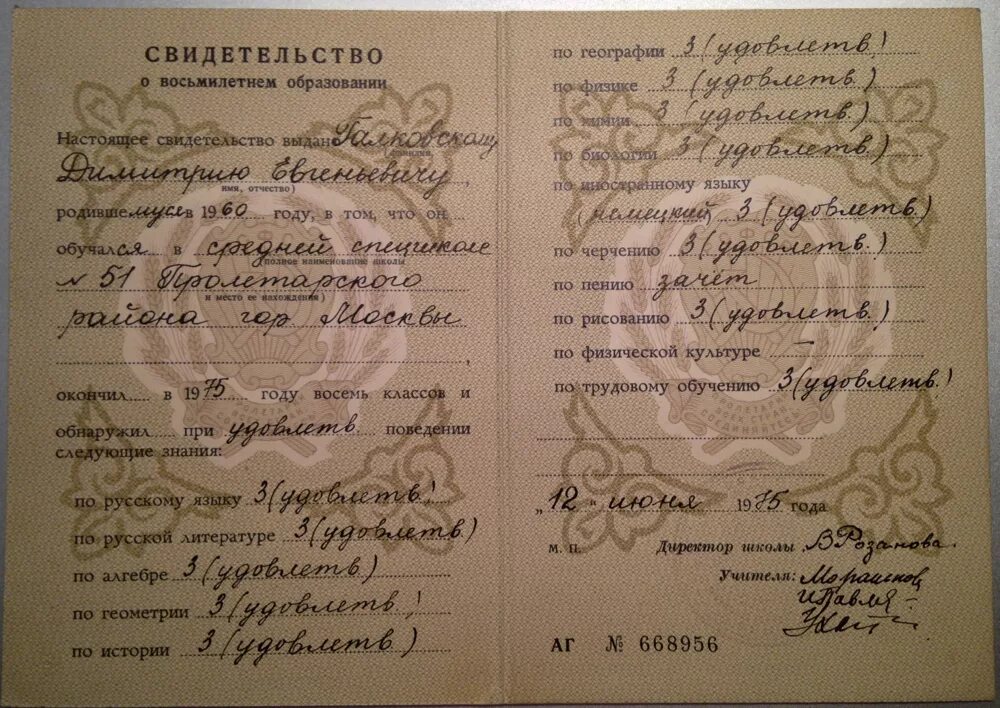 СВИДЕТЕЛЬСТВО
о восьмилетнем образовании
Настоящее свидетельство выдано Галковскому
(фамилия,
Димитрию Евгеньевичу,
имя, отчество)
родившемуся в 1960 году, в том, что он
обучался в средней спецшколе
(полное наименование школы
№ 51 Пролетарского
и место ее нахождения)
района гор Москвы
окончил в 1975 году восемь классов и
обнаружил при удовлетв. поведении
следующие знания:
по русскому языку 3 (удовлетв.)
по русской литературе 3 (удовлетв.)
по алгебре 3 (удовлетв.)
по геометрии 3 (удовлетв.)
по истории 3 (удовлетв.)
по географии 3 (удовлетв.)
по физике 3 (удовлетв.)
по химии 3 (удовлетв.)
по биологии 3 (удовлетв.)
по иностранному языку
(немецкий) 3 (удовлетв.)
по черчению 3 (удовлетв.)
по пению зачёт
по рисованию 3 (удовлетв.)
по физической культуре —
по трудовому обучению 3 (удовлетв.)
„12" июня 1975 года
М. П. Директор школы В Розанова
Учителя:
АГ № 668956